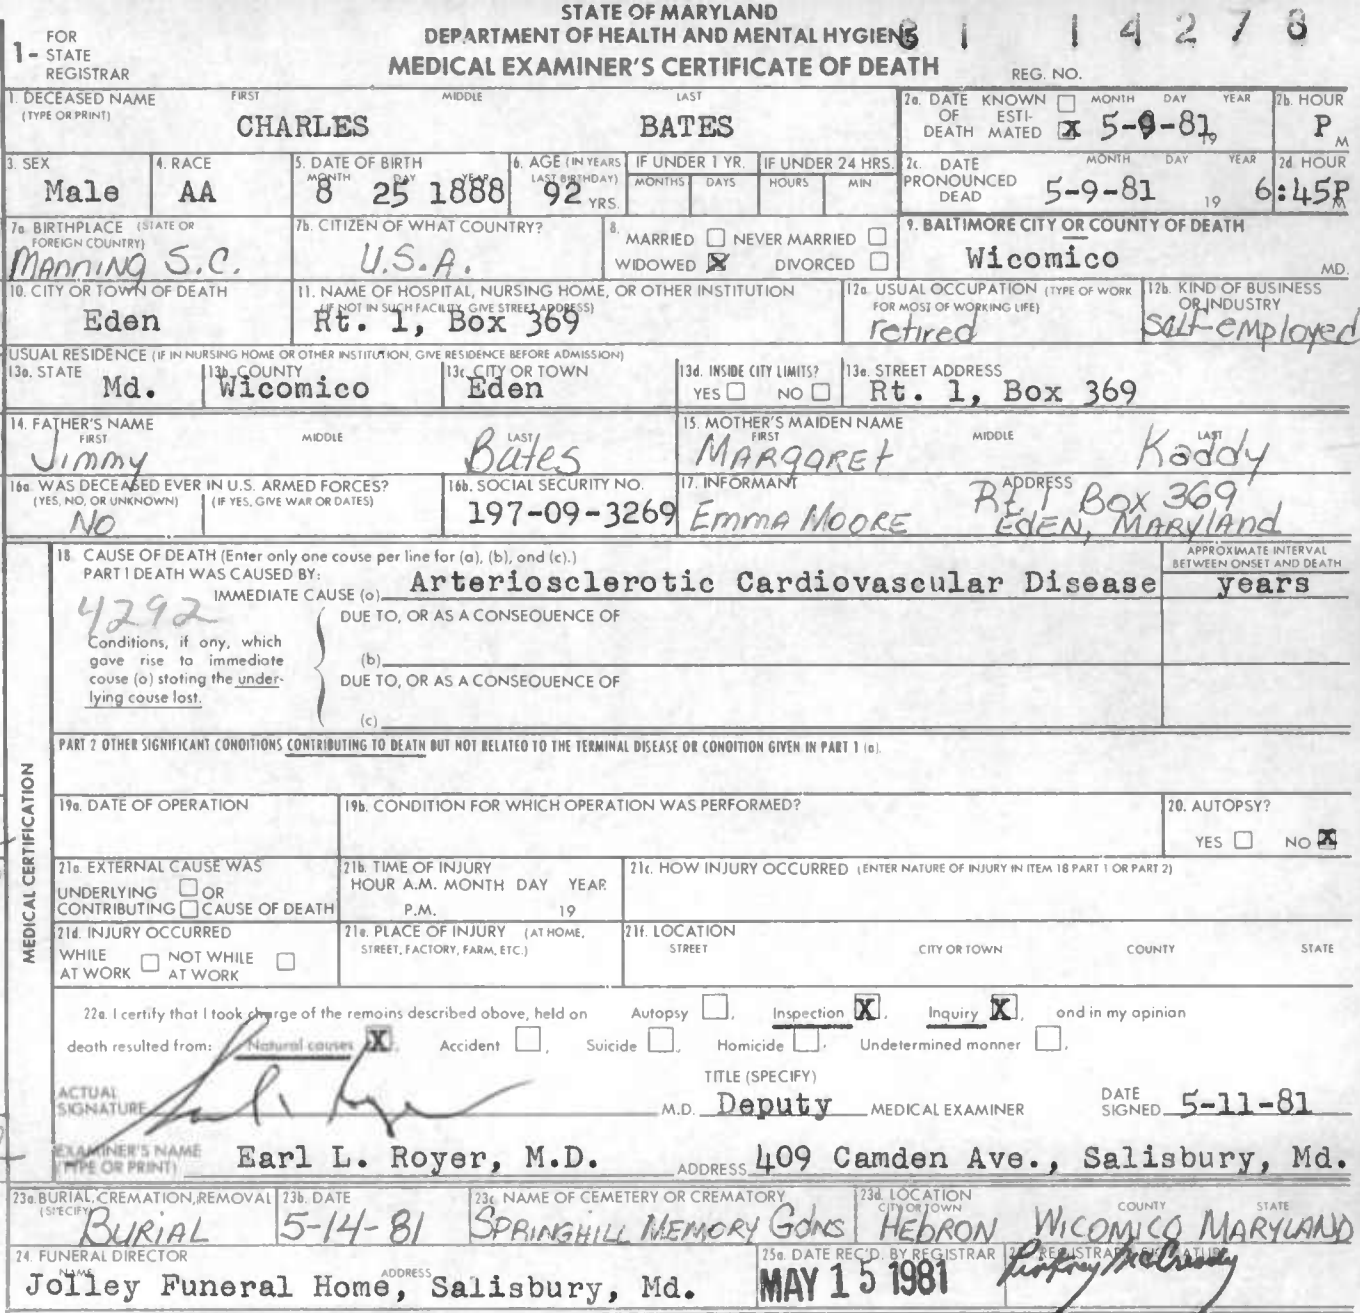 STATE OF MARYLAND
DEPARTMENT OF HEALTH AND MENTAL HYGIENE
MEDICAL EXAMINER'S CERTIFICATE OF DEATH
1- FOR STATE REGISTRAR
81 14278
REG. NO.
1. DECEASED NAME (TYPE OR PRINT) FIRST MIDDLE LAST
CHARLES BATES
2a. DATE OF DEATH KNOWN ☐ ESTIMATED ☒ MONTH DAY YEAR 5-9-81 19
2b. HOUR P M
3. SEX Male
4. RACE AA
5. DATE OF BIRTH MONTH DAY YEAR 8 25 1888
6. AGE (IN YEARS LAST BIRTHDAY) 92 YRS.
IF UNDER 1 YR. MONTHS DAYS
IF UNDER 24 HRS. HOURS MIN
2c. DATE PRONOUNCED DEAD MONTH DAY YEAR 5-9-81 19
2d. HOUR 6:45P M
7a. BIRTHPLACE (STATE OR FOREIGN COUNTRY) Manning S.C.
7b. CITIZEN OF WHAT COUNTRY? U.S.A.
8. MARRIED ☐ NEVER MARRIED ☐
WIDOWED ☒ DIVORCED ☐
9. BALTIMORE CITY OR COUNTY OF DEATH Wicomico MD.
10. CITY OR TOWN OF DEATH Eden
11. NAME OF HOSPITAL, NURSING HOME, OR OTHER INSTITUTION (IF NOT IN SUCH FACILITY, GIVE STREET ADDRESS) Rt. 1, Box 369
12a. USUAL OCCUPATION (TYPE OF WORK FOR MOST OF WORKING LIFE) retired
12b. KIND OF BUSINESS OR INDUSTRY salf-employed
USUAL RESIDENCE (IF IN NURSING HOME OR OTHER INSTITUTION, GIVE RESIDENCE BEFORE ADMISSION)
13a. STATE Md.
13b. COUNTY Wicomico
13c. CITY OR TOWN Eden
13d. INSIDE CITY LIMITS? YES ☐ NO ☐
13e. STREET ADDRESS Rt. 1, Box 369
14. FATHER'S NAME FIRST MIDDLE LAST
Jimmy Bates
15. MOTHER'S MAIDEN NAME FIRST MIDDLE LAST
Margaret Kaddy
16a. WAS DECEASED EVER IN U.S. ARMED FORCES? (YES, NO, OR UNKNOWN) (IF YES, GIVE WAR OR DATES)
NO
16b. SOCIAL SECURITY NO. 197-09-3269
17. INFORMANT Emma Moore
ADDRESS Rt 1 Box 369
Eden, Maryland
MEDICAL CERTIFICATION
18. CAUSE OF DEATH (Enter only one cause per line for (a), (b), and (c).)
PART I DEATH WAS CAUSED BY:
IMMEDIATE CAUSE (a) Arteriosclerotic Cardiovascular Disease
APPROXIMATE INTERVAL BETWEEN ONSET AND DEATH
years
4292
Conditions, if any, which gave rise to immediate cause (a) stating the underlying cause last.
DUE TO, OR AS A CONSEQUENCE OF
(b)
DUE TO, OR AS A CONSEQUENCE OF
(c)
PART 2 OTHER SIGNIFICANT CONDITIONS CONTRIBUTING TO DEATH BUT NOT RELATED TO THE TERMINAL DISEASE OR CONDITION GIVEN IN PART 1 (a).
19a. DATE OF OPERATION
19b. CONDITION FOR WHICH OPERATION WAS PERFORMED?
20. AUTOPSY? YES ☐ NO ☒
21a. EXTERNAL CAUSE WAS
UNDERLYING ☐ OR
CONTRIBUTING ☐ CAUSE OF DEATH
21b. TIME OF INJURY
HOUR A.M. MONTH DAY YEAR
P.M. 19
21c. HOW INJURY OCCURRED (ENTER NATURE OF INJURY IN ITEM 18 PART 1 OR PART 2)
21d. INJURY OCCURRED
WHILE AT WORK ☐ NOT WHILE AT WORK ☐
21e. PLACE OF INJURY (AT HOME, STREET, FACTORY, FARM, ETC.)
21f. LOCATION STREET CITY OR TOWN COUNTY STATE
22a. I certify that I took charge of the remains described above, held on Autopsy ☐, Inspection ☒, Inquiry ☒, and in my opinion
death resulted from: Natural causes ☒, Accident ☐, Suicide ☐, Homicide ☐, Undetermined manner ☐.
ACTUAL SIGNATURE Earl L. Royer M.D.
TITLE (SPECIFY) Deputy MEDICAL EXAMINER
DATE SIGNED 5-11-81
EXAMINER'S NAME (TYPE OR PRINT) Earl L. Royer, M.D. ADDRESS 409 Camden Ave., Salisbury, Md.
23a. BURIAL, CREMATION, REMOVAL (SPECIFY) Burial
23b. DATE 5-14-81
23c. NAME OF CEMETERY OR CREMATORY Springhill Memory Gdns
23d. LOCATION CITY OR TOWN COUNTY STATE
Hebron Wicomico Maryland
24. FUNERAL DIRECTOR NAME ADDRESS
Jolley Funeral Home, Salisbury, Md.
25a. DATE REC'D. BY REGISTRAR MAY 15 1981
REGISTRAR'S SIGNATURE